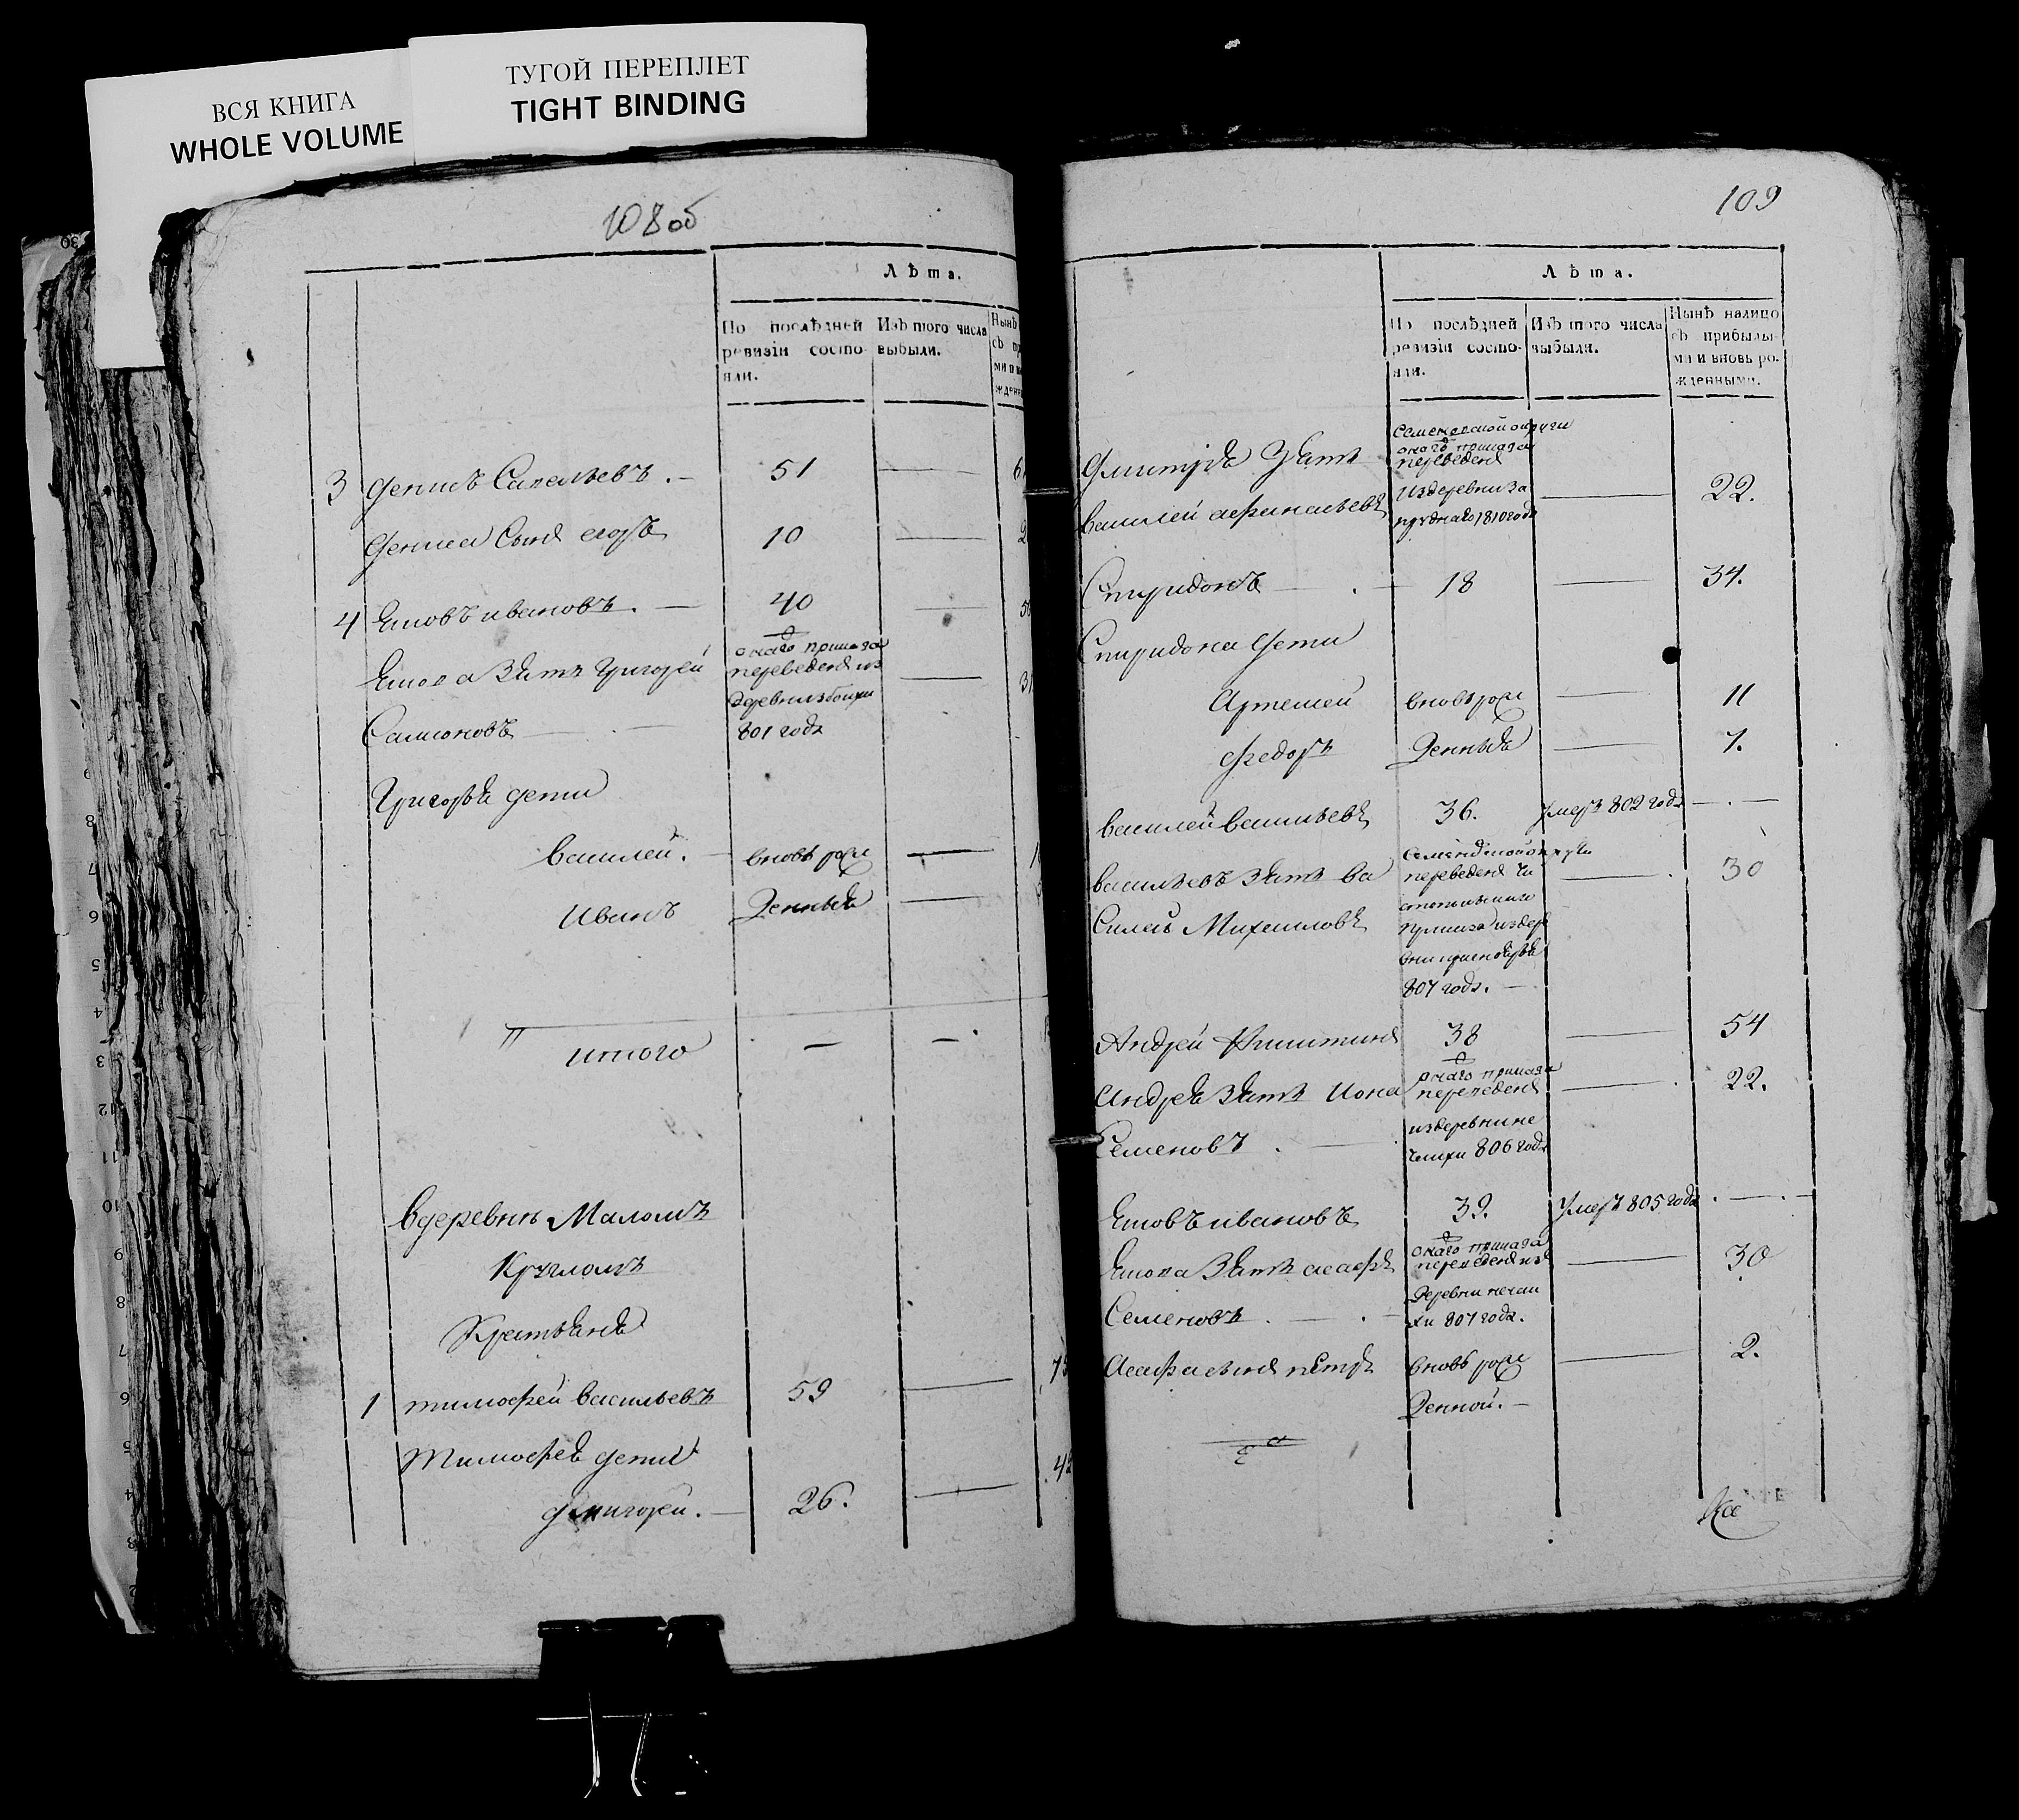 ВСЯ КНИГА
WHOLE VOLUME
ТУГОЙ ПЕРЕПЛЕТ
TIGHT BINDING
108 об
Лѣта.
По послѣдней ревизіи состояли.
Изъ того числа выбыли.
Нынѣ
3 Денисъ Савельевъ . — 51 —
Дениса Сынъ егоръ 10 —
4 Ековъ ивановъ . — 40 —
Екова Зять Григорей
Самсоновъ
онаго приказа
переведенъ из
801 года
Григорья дети
Василей . — вновь рож
Иванъ денныя —
итого — —
Вдеревнѣ Маломъ
Кругломъ
Крестьянъ
1 тимофей васильевъ 59 —
Тимофея дети
Григорей . — 26. —
109
Лѣта.
По послѣдней ревизіи состояли.
Изъ того числа выбыли.
Нынѣ налицо съ прибылыми и вновь рожденными.
Зять
василей афанасьевъ
Семеновской округи
онаго приказа
переведенъ
издеревни за
1810 года
— 22.
Спиридонъ — 18 — 34.
Спиридона дети
Артемей вновь рож — 11
Федоръ денныя — 7.
василей васильевъ 36. Умеръ 802 года — . —
васильевъ Зять Ва
Силей Михайловъ
переведенъ
приказа издере
807 года . —
— 30
Андрей Никитинъ 38 — 54
Андрея Зять Иона
Семеновъ .
онаго приказа
переведенъ
издеревни не
чаихи 806 года
— 22.
Ековъ ивановъ 39. Умеръ 805 года . — . —
Екова Зять асафъ
Семеновъ .
онаго приказа
переведенъ из
деревни нечаи
хи 807 года .
— 30
Асафа сынъ петръ вновь рож — 2.
денной . —